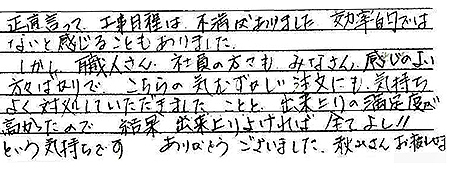 正直言って、工事日程は、不満がありました。効率的では
ないと感じることもありました。
しかし、職人さん、社員の方々も、みなさん、感じのよい
方々ばかりで、こちらの気むずかしい注文にも、気持ち
よく対処していただきました。ことと、出来上りの満足度が
高かったので、結果、出来上りよければ全てよし!!
という気持ちです ありがとうございました。秋山さんお疲れさま